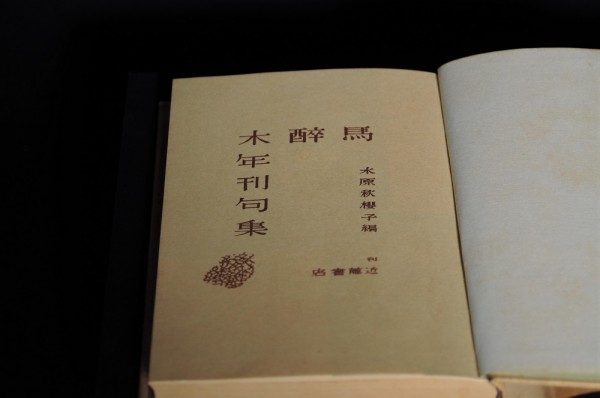 馬醉木年刊句集
水原秋櫻子編
近藤書店